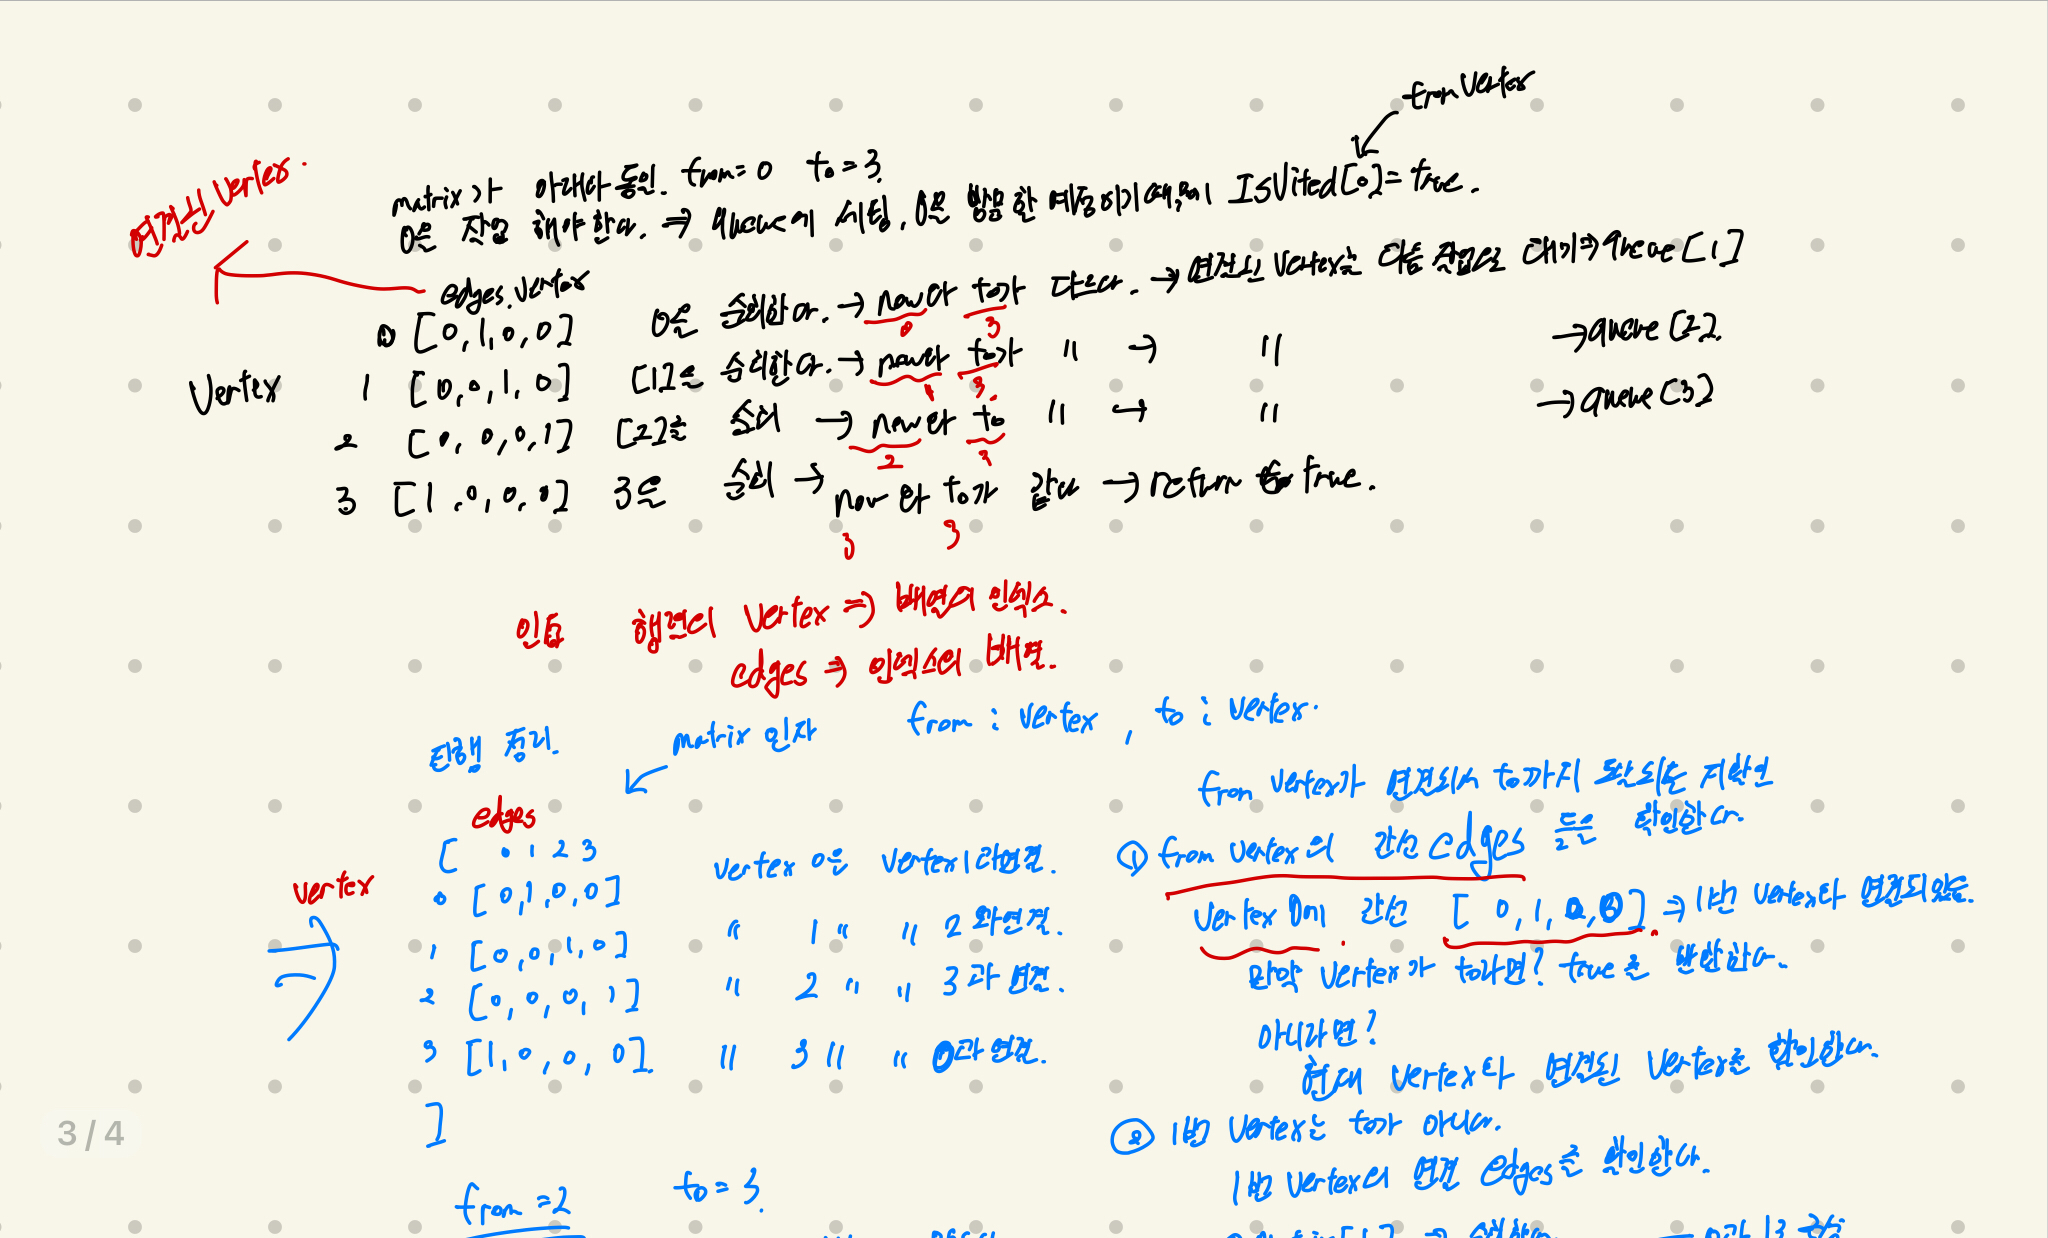 from Vertex
연결된 Vertex.
matrix가 아래와 동일. from=0 to=3.
0은 작업 해야 한다. ⇒ queue에 세팅, 0은 방문 한 예정이기 때문에 IsVited[0]=true.
edges.vertex
0 [0,1,0,0] 0을 순회한다. → now와 to가 다르다. → 연결된 Vertex는 다음 작업으로 대기⇒queue[1]
0 3
Vertex 1 [0,0,1,0] [1]을 순회한다. → now와 to가 〃 → 〃 → queue[2].
1 3.
2 [0,0,0,1] [2]를 순회 → now와 to 〃 → 〃 → queue[3]
2 3
3 [1,0,0,0] 3은 순회 → now와 to가 같다 → return true.
3 3
인접 행렬의 Vertex ⇒ 배열의 인덱스.
edges ⇒ 인덱스의 배열.
matrix 인자 from : Vertex , to : Vertex.
정리.
from Vertex가 연결되서 to까지 도달되는 지확인
edges
[ 0 1 2 3
vertex
0 [0,1,0,0] vertex 0은 vertex 1과연결.
1 [0,0,1,0] 〃 1 〃 〃 2 와연결.
2 [0,0,0,1] 〃 2 〃 〃 3 과 연결.
3 [1,0,0,0]. 〃 3 〃 〃 0과 연결.
]
from =2 to=3.
① from vertex의 간선 edges 들을 확인한다.
Vertex 0에 간선 [0,1,0,0]. ⇒ 1번 Vertex와 연결되있음.
만약 Vertex가 to라면? true를 반환한다.
아니라면?
현재 Vertex와 연결된 Vertex를 확인한다.
② 1번 Vertex는 to가 아니다.
1번 Vertex의 연결 edges를 확인한다.
3/4